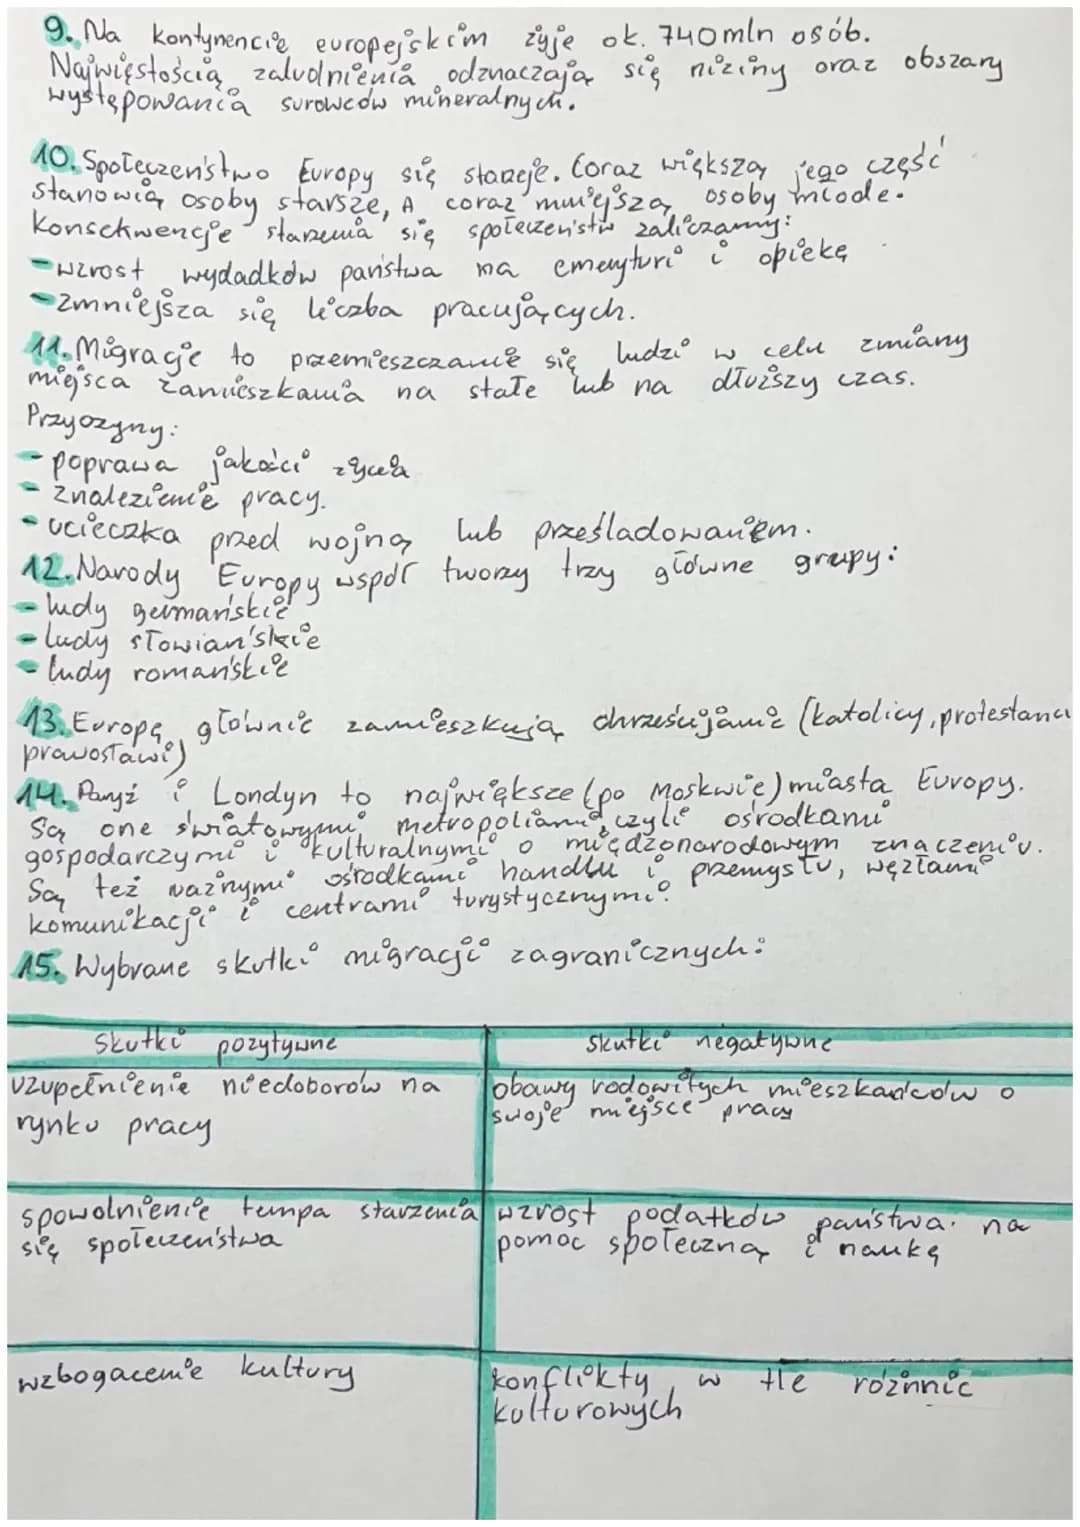 9. Na kontynencie europejskim żyje ok. 740mln osób.
Najwięstością zaludnienia odznaczają się niziny oraz obszary
występowania surowców mineralnych.
10. Społeczeństwo Europy się starzeje. Coraz większą jego część
stanowią osoby starsze, A coraz mniejszą osoby młode.
Konsekwencje starzenia się społeczeństw zaliczamy:
-wzrost wydadków państwa na emerytury i opiekę
-zmniejsza się liczba pracujących.
11. Migracje to przemieszczanie się ludzi w celu zmiany
miejsca zamieszkania na stałe lub na dłuższy czas.
Przyczyny:
- poprawa jakości życia
- znalezienie pracy.
- ucieczka przed wojną lub prześladowaniem.
12. Narody Europy wspól tworzy trzy główne grupy:
- ludy germańskie
- ludy słowiańskie
- ludy romańskie
13. Europę głównie zamieszkują chrześcijanie (katolicy, protestanci
prawosławi)
14. Paryż i Londyn to największe (po Moskwie) miasta Europy.
Są one światowymi metropoliami, czyli ośrodkami
gospodarczymi i kulturalnymi o międzonarodowym znaczeniu.
Są też ważnymi ośrodkami handlu i przemysłu, węzłami
komunikacji i centrami turystycznymi.
15. Wybrane skutki migracji zagranicznych:
Skutki pozytywne
skutki negatywne
uzupełnienie niedoborów na
rynku pracy
obawy rodowitych mieszkańców o
swoje miejsce pracy
spowolnienie tempa starzenia
się społeczeństwa
wzrost podatków państwa na
pomoc społeczną i naukę
wzbogacenie kultury
konflikty w tle różnnic
kulturowych